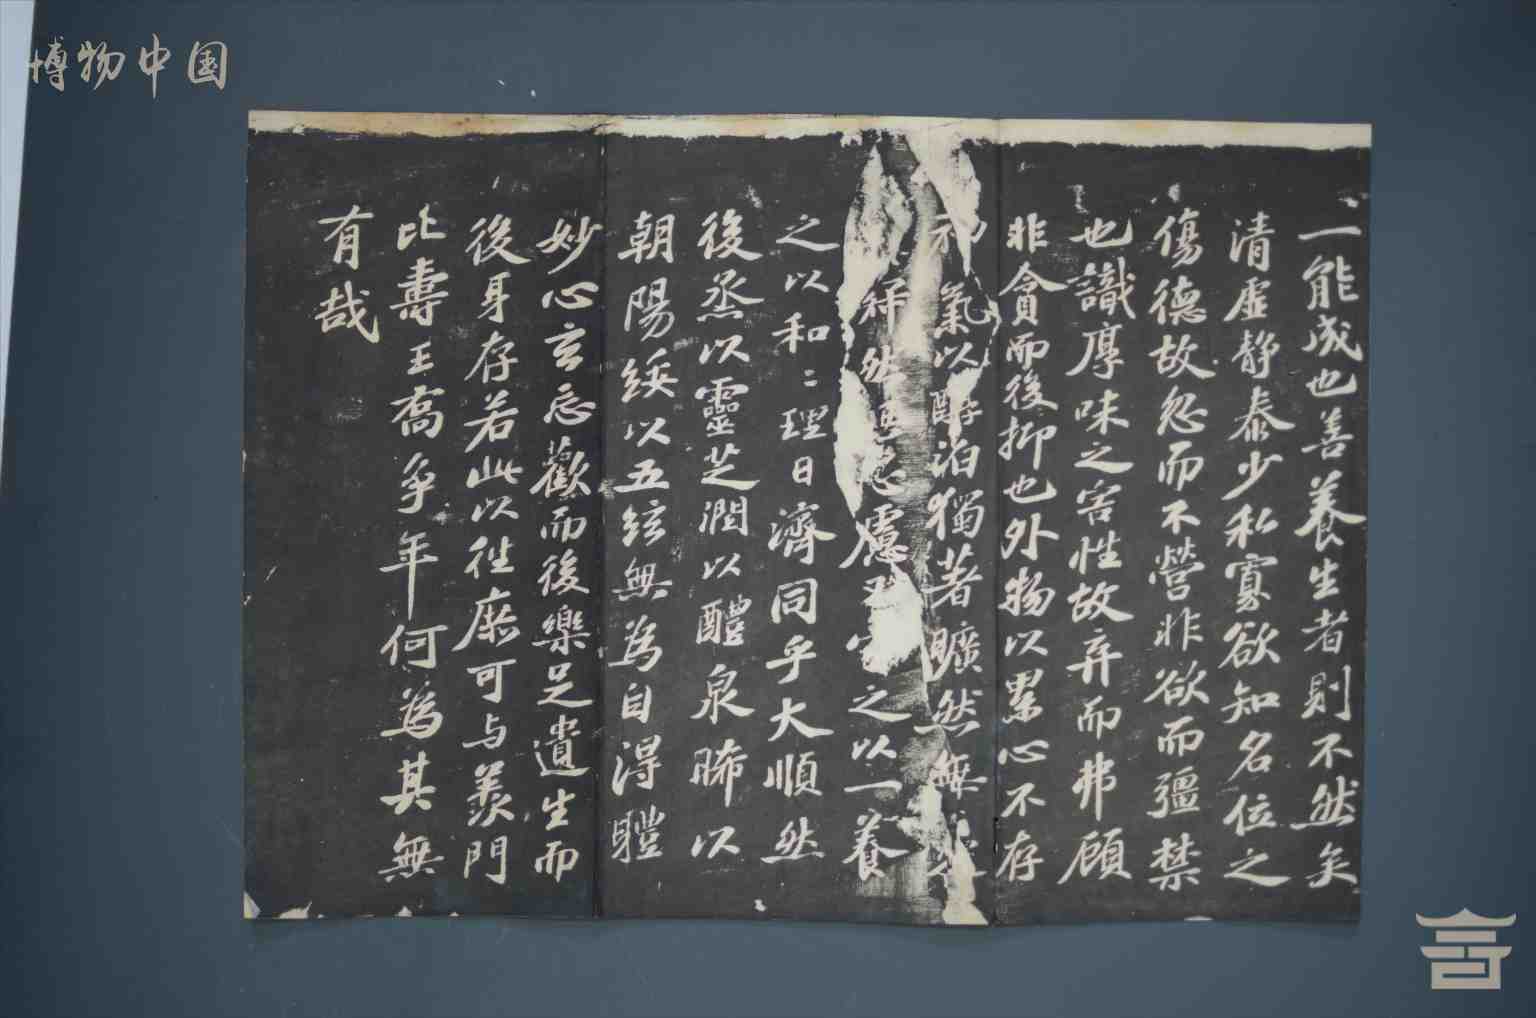 博物中国
一能成也善養生者則不然矣
清虛静泰少私寡欲知名位之
傷德故忽而不營非欲而彊禁
也識厚味之害性故弃而弗顧
非貪而後抑也外物以累心不存
氣以醇泊獨著曠然無
然慮之以一養
之以和二理日濟同乎大順然
後烝以靈芝潤以醴泉晞以
朝陽綏以五絃無為自得體
妙心玄忘歡而後樂足遺生而
後身存若此以往庶可与羨門
比壽王喬爭年何為其無
有哉